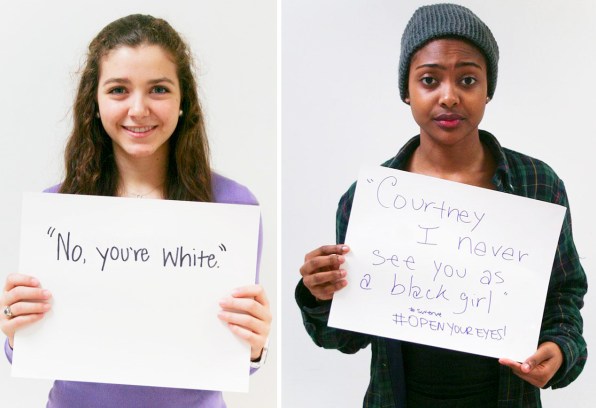 "No, you're White."
"Courtney
I never
see you as
a black girl"
#OPENYOUREYES!